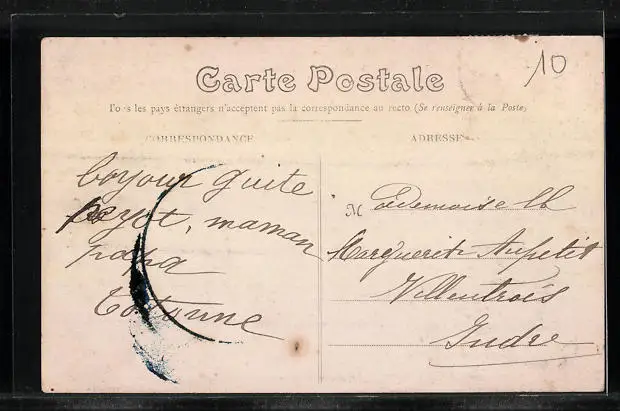 10
Carte Postale
Tous les pays étrangers n'acceptent pas la correspondance au recto (Se renseigner à la Poste)
CORRESPONDANCE
ADRESSE
boyour guite
maman
papa
totonne
Mademoiselle
Marguerite Aupetit
Villentrois
Indre